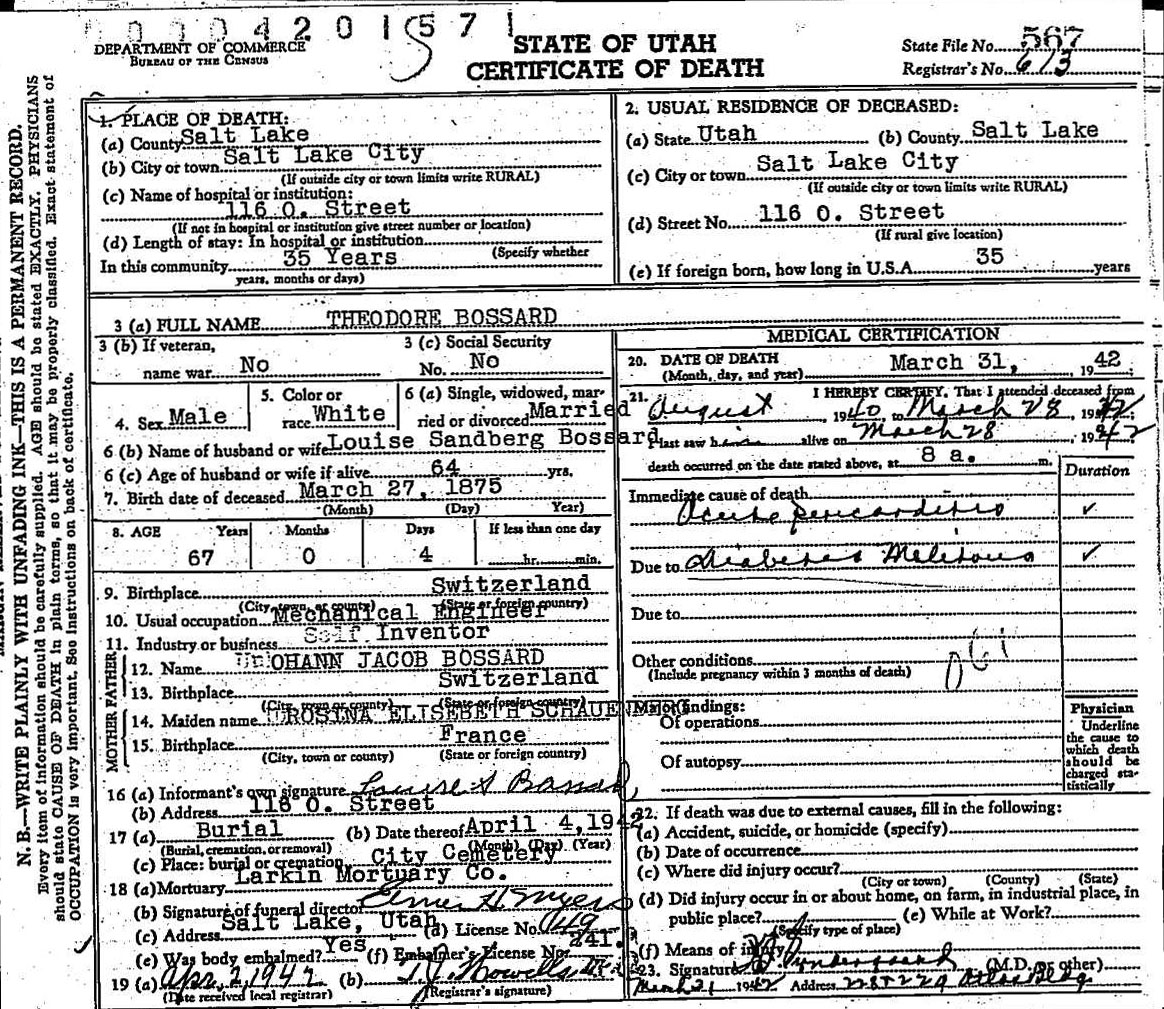 0 0 0 0 4 2 0 1 5 7 1
DEPARTMENT OF COMMERCE
BUREAU OF THE CENSUS
STATE OF UTAH
CERTIFICATE OF DEATH
State File No. 567
Registrar's No. 613
N. B.—WRITE PLAINLY WITH UNFADING INK—THIS IS A PERMANENT RECORD.
Every item of information should be carefully supplied. AGE should be stated EXACTLY. PHYSICIANS
should state CAUSE OF DEATH in plain terms, so that it may be properly classified. Exact statement of
OCCUPATION is very important. See instructions on back of certificate.
1. PLACE OF DEATH:
(a) County Salt Lake
(b) City or town Salt Lake City
(If outside city or town limits write RURAL)
(c) Name of hospital or institution:
116 O. Street
(If not in hospital or institution give street number or location)
(d) Length of stay: In hospital or institution
(Specify whether
In this community 35 Years
years, months or days)
2. USUAL RESIDENCE OF DECEASED:
(a) State Utah (b) County Salt Lake
(c) City or town Salt Lake City
(If outside city or town limits write RURAL)
(d) Street No. 116 O. Street
(If rural give location)
(e) If foreign born, how long in U.S.A. 35 years
3 (a) FULL NAME THEODORE BOSSARD
3 (b) If veteran,
name war No
3 (c) Social Security
No. No
4. Sex Male
5. Color or
race White
6 (a) Single, widowed, mar-
ried or divorced Married
6 (b) Name of husband or wife Louise Sandberg Bossard
6 (c) Age of husband or wife if alive 64 yrs.
7. Birth date of deceased March 27, 1875
(Month) (Day) Year)
8. AGE Years Months Days If less than one day
67 0 4 hr. min.
9. Birthplace Switzerland
(City, town, or county) (State or foreign country)
10. Usual occupation Mechanical Engineer
11. Industry or business Self Inventor
FATHER
12. Name JOHANN JACOB BOSSARD
13. Birthplace Switzerland
(City, town or county) (State or foreign country)
MOTHER
14. Maiden name ROSINA ELISEBETH
15. Birthplace France
(City, town or county) (State or foreign country)
16 (a) Informant's own signature Louise S Bossard
(b) Address 116 O. Street
17 (a) Burial (b) Date thereof April 4, 1942
(Burial, cremation, or removal) (Month) (Day) (Year)
(c) Place: burial or cremation City Cemetery
18 (a) Mortuary Larkin Mortuary Co.
(b) Signature of funeral director Elmer H Myers
(c) Address Salt Lake, Utah (d) License No.
(e) Was body embalmed? Yes (f) Embalmer's License No. 241.
19 (a) Apr. 2, 1942 (b) Howells
(Date received local registrar) (Registrar's signature)
MEDICAL CERTIFICATION
20. DATE OF DEATH March 31, 1942
(Month, day, and year)
21. I HEREBY CERTIFY, That I attended deceased from
August 1940 to March 28, 1942
I last saw him alive on March 28, 1942
death occurred on the date stated above, at 8 a. m.
Duration
Immediate cause of death
Acute pericarditis ✓
Due to Diabetes Melitous ✓
Due to
Other conditions
(Include pregnancy within 3 months of death)
061
Major findings:
Of operations
Of autopsy
Physician
Underline
the cause to
which death
should be
charged sta-
tistically
22. If death was due to external causes, fill in the following:
(a) Accident, suicide, or homicide (specify)
(b) Date of occurrence
(c) Where did injury occur?
(City or town) (County) (State)
(d) Did injury occur in or about home, on farm, in industrial place, in
public place? (e) While at Work?
(Specify type of place)
(f) Means of injury
23. Signature (M.D. or other)
March 31 1942 Address Atlas Bldg